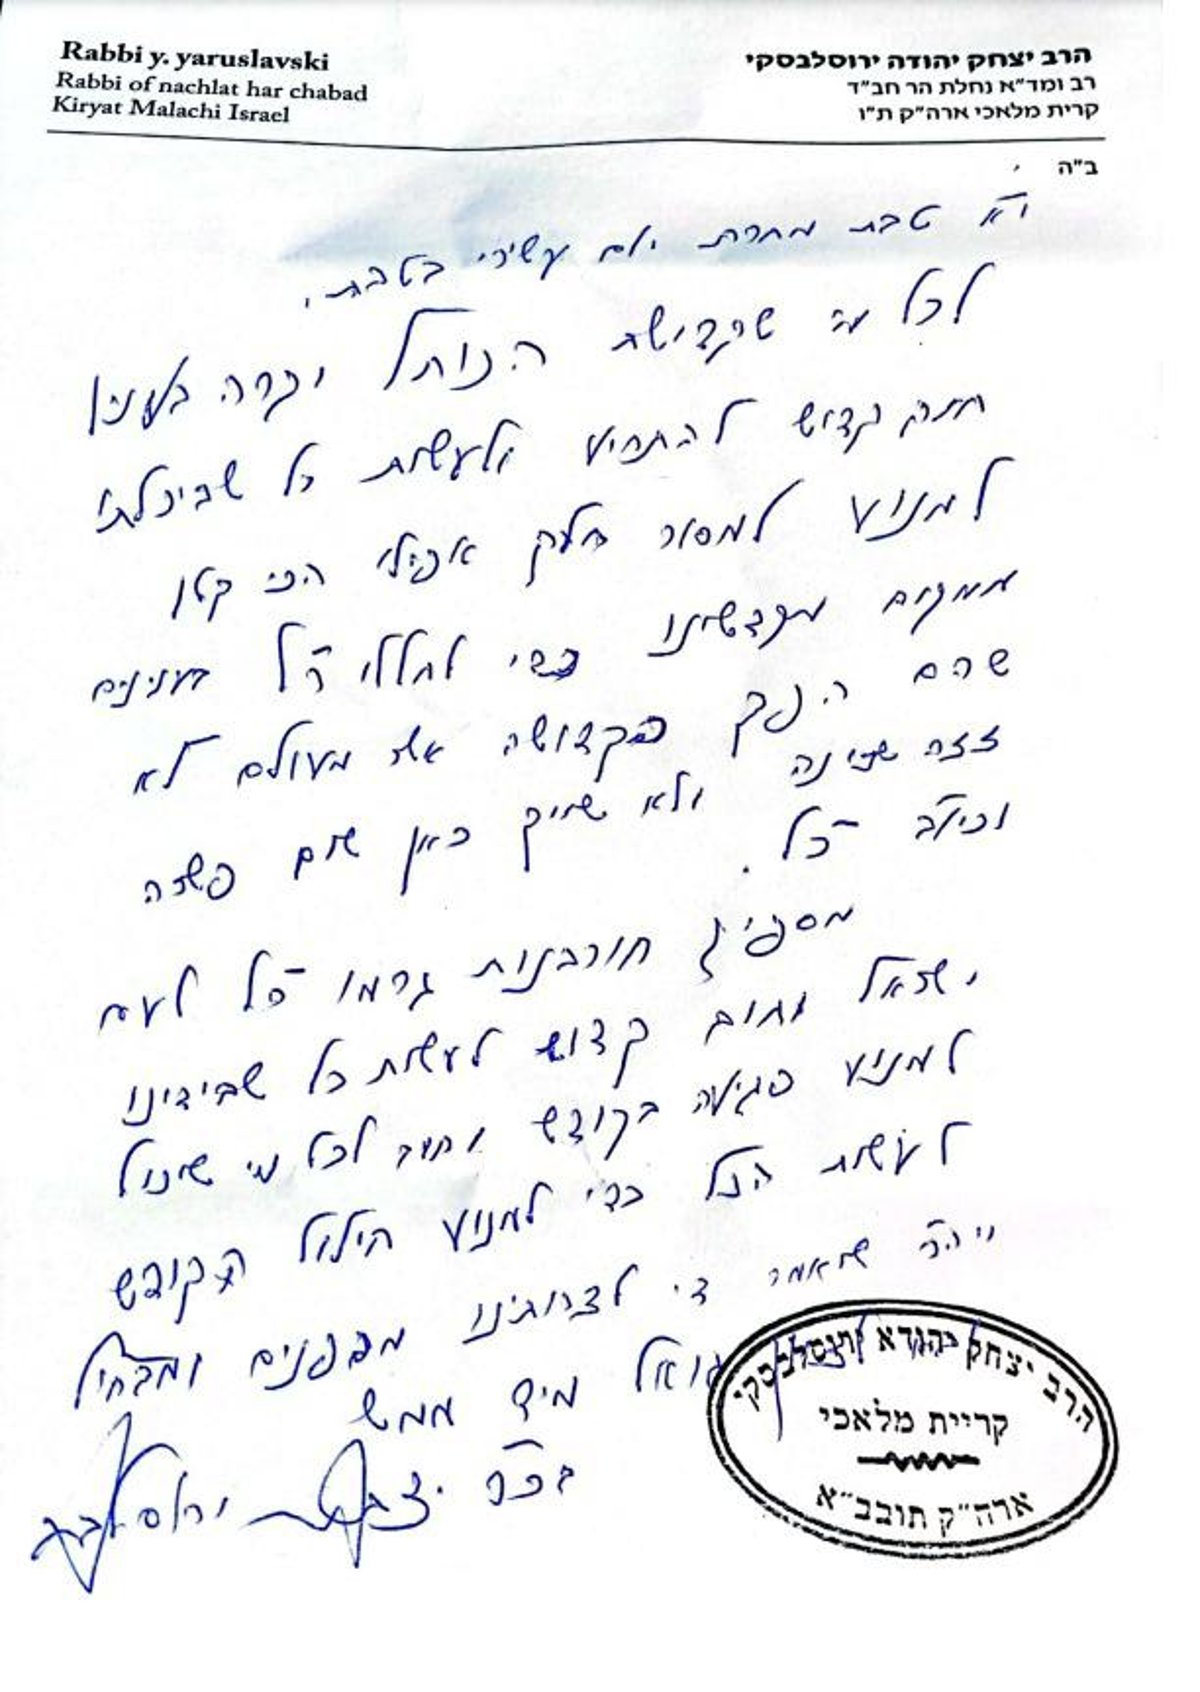 Rabbi y. yaruslavski
Rabbi of nachlat har chabad
Kiryat Malachi Israel
הרב יצחק יהודה ירוסלבסקי
רב ומד"א נחלת הר חב"ד
קרית מלאכי ארה"ק ת"ו
ב"ה
י"א טבת מחרת יום עשירי בטבת.
לכל מי שקדושת הכותל יקרה בעניו
חוב קדוש להתריע ולעשות כל שביכלתו
למנוע למסור חלק אפילו הכי קטן
ממקום מקדשינו כדי לחללו ר"ל בענינים
שהם היפך הקדושה אשר מעולם לא
זזה שכינה ולא שייך כאן שום פשרה
וכיו"ב כלל.
מספיק חורבנות גרמו כל לעם
ישראל וחוב קדוש לעשות כל שבידינו
למנוע פגיעה בקודש וחוב לכל מי שיכול
לעשות הנ"ל כדי למנוע חילול הקודש
ויה"ר שיאמר די לצרותינו מבפנים ומבחוץ
גואל מיד ממש
בכ"ר יצחק יהודה ירוסלבסקי
הרב יצחק יהודא ירוסלבסקי
קריית מלאכי
ארה"ק תובב"א